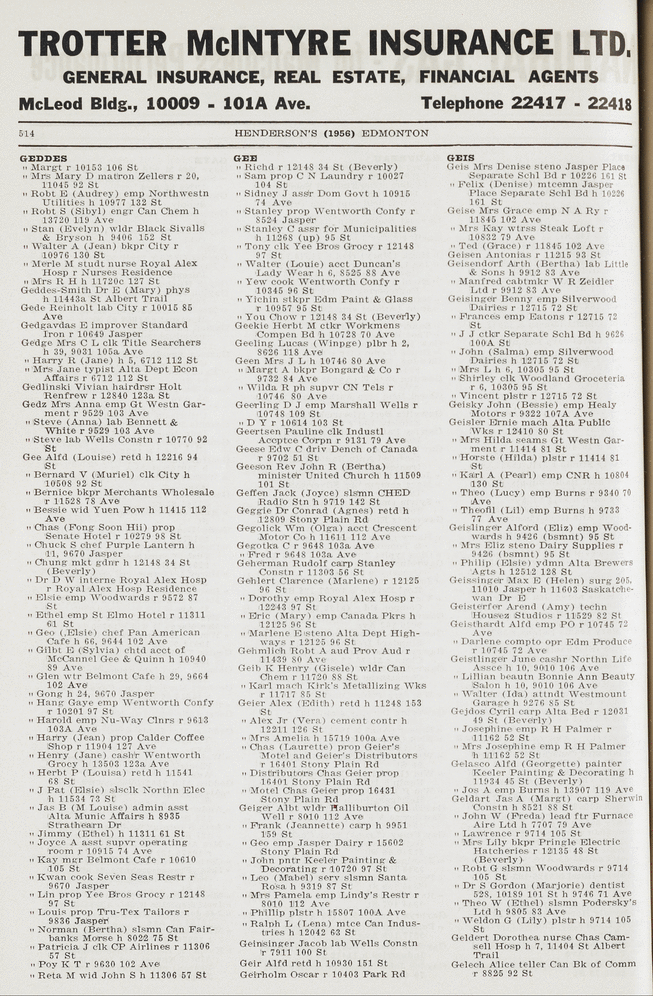 TROTTER McINTYRE INSURANCE LTD.
GENERAL INSURANCE, REAL ESTATE, FINANCIAL AGENTS
McLeod Bldg., 10009 - 101A Ave. Telephone 22417 - 22418
514 HENDERSON'S (1956) EDMONTON
GEDDES
" Margt r 10153 106 St
" Mrs Mary D matron Zellers r 20,
11045 92 St
" Robt E (Audrey) emp Northwestn
Utilities h 10977 132 St
" Robt S (Sibyl) engr Can Chem h
13720 119 Ave
" Stan (Evelyn) wldr Black Sivalls
& Bryson h 9406 152 St
" Walter A (Jean) bkpr City r
10976 130 St
" Merle M studt nurse Royal Alex
Hosp r Nurses Residence
" Mrs R H h 11720c 127 St
Geddes-Smith Dr E (Mary) phys
h 11443a St Albert Trail
Gede Reinholt lab City r 10015 85
Ave
Gedgavdas E improver Standard
Iron r 10649 Jasper
Gedge Mrs C L clk Title Searchers
h 39, 9031 105a Ave
" Harry R (Jane) h 5, 6712 112 St
" Mrs Jane typist Alta Dept Econ
Affairs r 6712 112 St
Gedlinski Vivian hairdrsr Holt
Renfrew r 12840 123a St
Gedz Mrs Anna emp Gt Westn Gar-
ment r 9529 103 Ave
" Steve (Anna) lab Bennett &
White r 9529 103 Ave
" Steve lab Wells Constn r 10770 92
St
Gee Alfd (Louise) retd h 12216 94
St
" Bernard V (Muriel) clk City h
10508 92 St
" Bernice bkpr Merchants Wholesale
r 11528 78 Ave
" Bessie wid Yuen Pow h 11415 112
Ave
" Chas (Fong Soon Hii) prop
Senate Hotel r 10279 98 St
" Chuck S chef Purple Lantern h
11, 9670 Jasper
" Chung mkt gdnr h 12148 34 St
(Beverly)
" Dr D W interne Royal Alex Hosp
r Royal Alex Hosp Residence
" Elsie emp Woodwards r 9572 87
St
" Ethel emp St Elmo Hotel r 11311
61 St
" Geo (Elsie) chef Pan American
Cafe h 66, 9644 102 Ave
" Gilbt E (Sylvia) chtd acct of
McCannel Gee & Quinn h 10940
89 Ave
" Glen wtr Belmont Cafe h 29, 9664
102 Ave
" Gong h 24, 9670 Jasper
" Hang Gaye emp Wentworth Confy
r 10201 97 St
" Harold emp Nu-Way Clnrs r 9613
103A Ave
" Harry (Jean) prop Calder Coffee
Shop r 11904 127 Ave
" Henry (Jane) cashr Wentworth
Grocy h 13503 123a Ave
" Herbt P (Louisa) retd h 11541
68 St
" J Pat (Elsie) slsclk Northn Elec
h 11534 73 St
" Jas B (M Louise) admin asst
Alta Munic Affairs h 8935
Strathearn Dr
" Jimmy (Ethel) h 11311 61 St
" Joyce A asst supvr operating
room r 10915 74 Ave
" Kay mgr Belmont Cafe r 10610
105 St
" Kwan cook Seven Seas Restr r
9670 Jasper
" Lin prop Yee Bros Grocy r 12148
97 St
" Louis prop Tru-Tex Tailors r
9836 Jasper
" Norman (Bertha) slsmn Can Fair-
banks Morse h 8022 75 St
" Patricia J clk CP Airlines r 11306
57 St
" Poy K T r 9630 102 Ave
" Reta M wid John S h 11306 57 St
GEE
" Richd r 12148 34 St (Beverly)
" Sam prop C N Laundry r 10027
104 St
" Sidney J assr Dom Govt h 10915
74 Ave
" Stanley prop Wentworth Confy r
8524 Jasper
" Stanley C assr for Municipalities
h 11268 (up) 95 St
" Tony clk Yee Bros Grocy r 12148
97 St
" Walter (Louie) acct Duncan's
Lady Wear h 6, 8525 88 Ave
" Yew cook Wentworth Confy r
10345 96 St
" Yichin stkpr Edm Paint & Glass
r 10957 95 St
" You Chow r 12148 34 St (Beverly)
Geekie Herbt M ctkr Workmens
Compen Bd h 10728 70 Ave
Geeling Lucas (Winpge) plbr h 2,
8626 118 Ave
Geen Mrs J L h 10746 80 Ave
" Margt A bkpr Bongard & Co r
9732 84 Ave
" Wilda R ph supvr CN Tels r
10746 80 Ave
Geerling D J emp Marshall Wells r
10748 109 St
" D Y r 10614 103 St
Geertsen Pauline clk Industl
Accptce Corpn r 9131 79 Ave
Geese Edw C driv Dench of Canada
r 9702 51 St
Geeson Rev John R (Bertha)
minister United Church h 11509
101 St
Geffen Jack (Joyce) slsmn CHED
Radio Stn h 9719 142 St
Geggie Dr Conrad (Agnes) retd h
12809 Stony Plain Rd
Gegolick Wm (Olga) acct Crescent
Motor Co h 11611 112 Ave
Gegotka C r 9648 103a Ave
" Fred r 9648 103a Ave
Geherman Rudolf carp Stanley
Constn r 11303 56 St
Gehlert Clarence (Marlene) r 12125
96 St
" Dorothy emp Royal Alex Hosp r
12243 97 St
" Eric (Mary) emp Canada Pkrs h
12125 96 St
" Marlene E steno Alta Dept High-
ways r 12125 96 St
Gehmlich Robt A aud Prov Aud r
11439 80 Ave
Geib K Henry (Gisele) wldr Can
Chem r 11720 88 St
" Karl mach Kirk's Metallizing Wks
r 11717 85 St
Geier Alex (Edith) retd h 11248 153
St
" Alex Jr (Vera) cement contr h
12211 126 St
" Mrs Amelia h 15719 100a Ave
" Chas (Laurette) prop Geier's
Motel and Geier's Distributors
r 16401 Stony Plain Rd
" Distributors Chas Geier prop
16401 Stony Plain Rd
" Motel Chas Geier prop 16431
Stony Plain Rd
Geiger Albt wldr Halliburton Oil
Well r 8010 112 Ave
" Frank (Jeannette) carp h 9951
159 St
" Geo emp Jasper Dairy r 15602
Stony Plain Rd
" John pntr Keeler Painting &
Decorating r 10720 97 St
" Leo (Mabel) serv slsmn Santa
Rosa h 9319 87 St
" Mrs Pamela emp Lindy's Restr r
8010 112 Ave
" Phillip plstr h 15807 100A Ave
" Ralph L (Lena) mtce Can Indus-
tries h 12042 63 St
Geinsinger Jacob lab Wells Constn
r 7911 100 St
Geir Alfd retd h 10930 151 St
Geirholm Oscar r 10403 Park Rd
GEIS
Geis Mrs Denise steno Jasper Place
Separate Schl Bd r 10226 161 St
" Felix (Denise) mtcemn Jasper
Place Separate Schl h 10226
161 St
Geise Mrs Grace emp N A Ry r
11845 102 Ave
" Mrs Kay wtrss Steak Loft r
10832 79 Ave
" Ted (Grace) r 11845 102 Ave
Geisen Antonias r 11215 93 St
Geisendorf Arth (Bertha) lab Little
& Sons h 9912 83 Ave
" Manfred cabtmkr W R Zeidler
Ltd r 9912 83 Ave
Geisinger Benny emp Silverwood
Dairies r 12715 72 St
" Frances emp Eatons r 12715 72
St
" J J ctker Separate Schl Bd h 9626
100A St
" John (Salma) emp Silverwood
Dairies h 12715 72 St
" Mrs L h 6, 10305 95 St
" Shirley clk Woodland Groceteria
r 6, 10305 95 St
" Vincent plstr r 12715 72 St
Geisky John (Bessie) emp Healy
Motors r 9322 107A Ave
Geisler Ernie mach Alta Public
Wks r 12410 80 St
" Mrs Hilda seams Gt Westn Gar-
ment r 11414 81 St
" Horste (Hilda) plstr r 11414 81
St
" Karl A (Pearl) emp CNR h 10804
130 St
" Theo (Lucy) emp Burns r 9340 70
Ave
" Theofil (Lil) emp Burns h 9733
77 Ave
Geislinger Alford (Eliz) emp Wood-
wards h 9426 (bsmnt) 95 St
" Mrs Eliz steno Dairy Supplies r
9426 (bsmnt) 95 St
" Philip (Elsie) ydmn Alta Brewers
Agts h 12512 128 St
Geissinger Max E (Helen) surg 205,
11010 Jasper h 11603 Saskatche-
wan Dr E
Geisterfer Arend (Amy) techn
Housez Studios r 11529 82 St
Geisthardt Alfd emp PO r 10745 72
Ave
" Darlene compto opr Edm Produce
r 10745 72 Ave
Geistlinger June cashr Northn Life
Assce h 10, 9010 106 Ave
" Lillian beautn Bonnie Ann Beauty
Salon h 10, 9010 106 Ave
" Walter (Ida) attndt Westmount
Garage h 9276 85 St
Gejdos Cyril carp Alta Bed r 12031
49 St (Beverly)
" Josephine emp R H Palmer r
11162 52 St
" Mrs Josephine emp R H Palmer
h 11162 52 St
Gelasco Alfd (Georgette) painter
Keeler Painting & Decorating h
11934 45 St (Beverly)
" Jos A emp Burns h 13907 119 Ave
Geldart Jas A (Margt) carp Sherwin
Constn h 8521 88 St
" John W (Freda) lead ftr Furnace
Aire Ltd h 7707 79 Ave
" Lawrence r 9714 105 St
" Mrs Lily bkpr Pringle Electric
Hatcheries r 12135 48 St
(Beverly)
" Robt G slsmn Woodwards r 9714
105 St
" Dr S Gordon (Marjorie) dentist
528, 10189 101 St h 9746 71 Ave
" Theo W (Ethel) slsmn Podersky's
Ltd h 9805 83 Ave
" Weldon G (Lily) plstr h 9714 105
St
Geldert Dorothea nurse Chas Cam-
sell Hosp h 7, 11404 St Albert
Trail
Gelech Alice teller Can Bk of Comm
r 8825 92 St